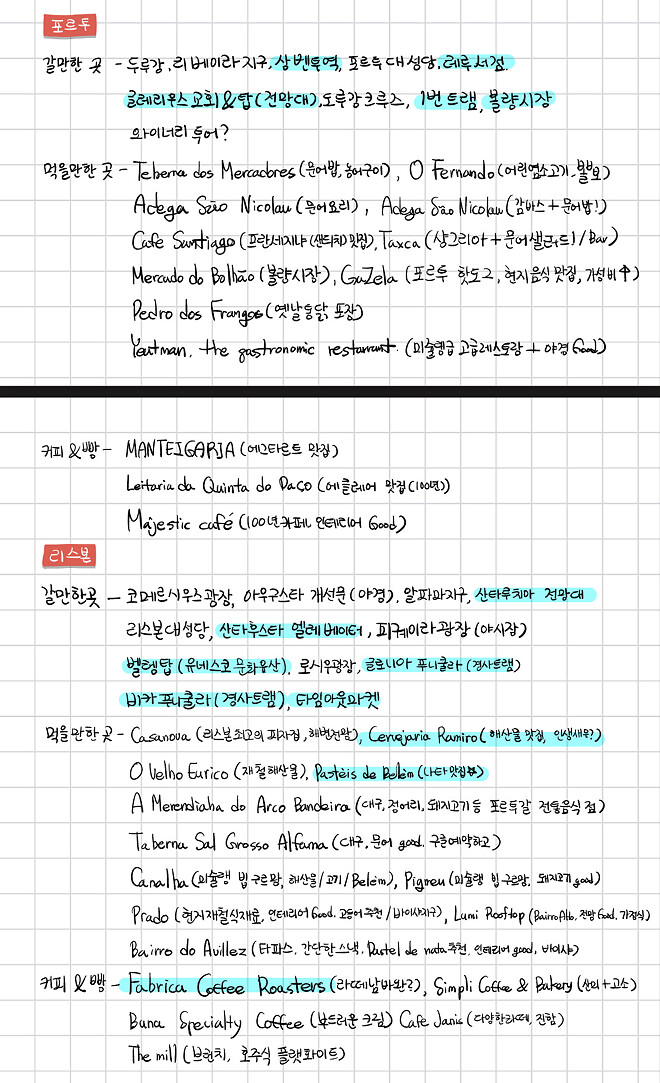 포르투
갈만한 곳 - 두루강, 리베이라지구, 상벤투역, 포르투 대성당, 레루서점,
클레리우스 교회&탑(전망대), 도루강크루즈, 1번 트램, 볼량시장
와이너리 투어?
먹을만한 곳 - Teberna dos Mercadores (문어밥, 농어구이), O Fernando (어린염소고기, 뽈뽀)
Adega São Nicolau (문어요리), Adega São Nicolau (감바스+문어밥!)
Cafe Santiago (프란세지냐 (샌드위치) 맛집), Taxca (샹그리아+문어샐러드) / Bar)
Mercado do Bolhão (볼량시장), Gazela (포르투 핫도그, 현지음식 맛집, 가성비↑)
Pedro dos Frangos (옛날통닭 포장)
Yeatman, the gastronomic restaurant. (미슐랭급 고급레스토랑 + 야경 Good)
커피 &빵 - MANTEIGARIA (에그타르트 맛집)
Leitaria da Quinta do Paço (에클레어 맛집 (100년))
Majestic café (100년 카페, 인테리어 Good)
리스본
갈만한곳 - 코메르시우스광장, 아우구스타 개선문 (야경), 알파마지구, 산타루치아 전망대
리스본대성당, 산타후스타 엘레베이터, 피게이라광장 (야시장)
벨렝탑 (유네스코 문화유산), 로시우광장, 글로리아 푸니쿨라 (경사트램)
비카 푸니쿨라 (경사트램), 타임아웃마켓
먹을만한 곳 - Casanova (리스본 최고의 피자집, 해변전망), Cervejaria Ramiro (해산물 맛집, 인생새우?)
O Velho Eurico (제철해산물), Pastéis de Belém (나타 맛집)
A Merendinha do Arco Bandeira (대구, 정어리, 돼지고기 등 포르투갈 전통음식점)
Taberna Sal Grosso Alfama (대구, 문어 good. 구글예약하고)
Canalha (미슐랭 빕구르망, 해산물/고기/Belém), Pigmeu (미슐랭 빕구르망, 돼지고기 good)
Prado (현지제철식재료, 인테리어 Good, 고등어추천 / 바이샤지구), Lumi Rooftop (Bairro Alto, 전망 Good, 가정식)
Bairro do Avillez (타파스, 간단한스낵, Pastel de nata추천, 인테리어 good, 바이샤)
커피 &빵 - Fabrica Coffee Roasters (라떼남바완?), Simpli Coffee & Bakery (산미+고소)
Buna Specialty Coffee (부드러운 크림) Cafe Janis (다양한라떼, 진함)
The mill (브런치, 호주식 플랫화이트)